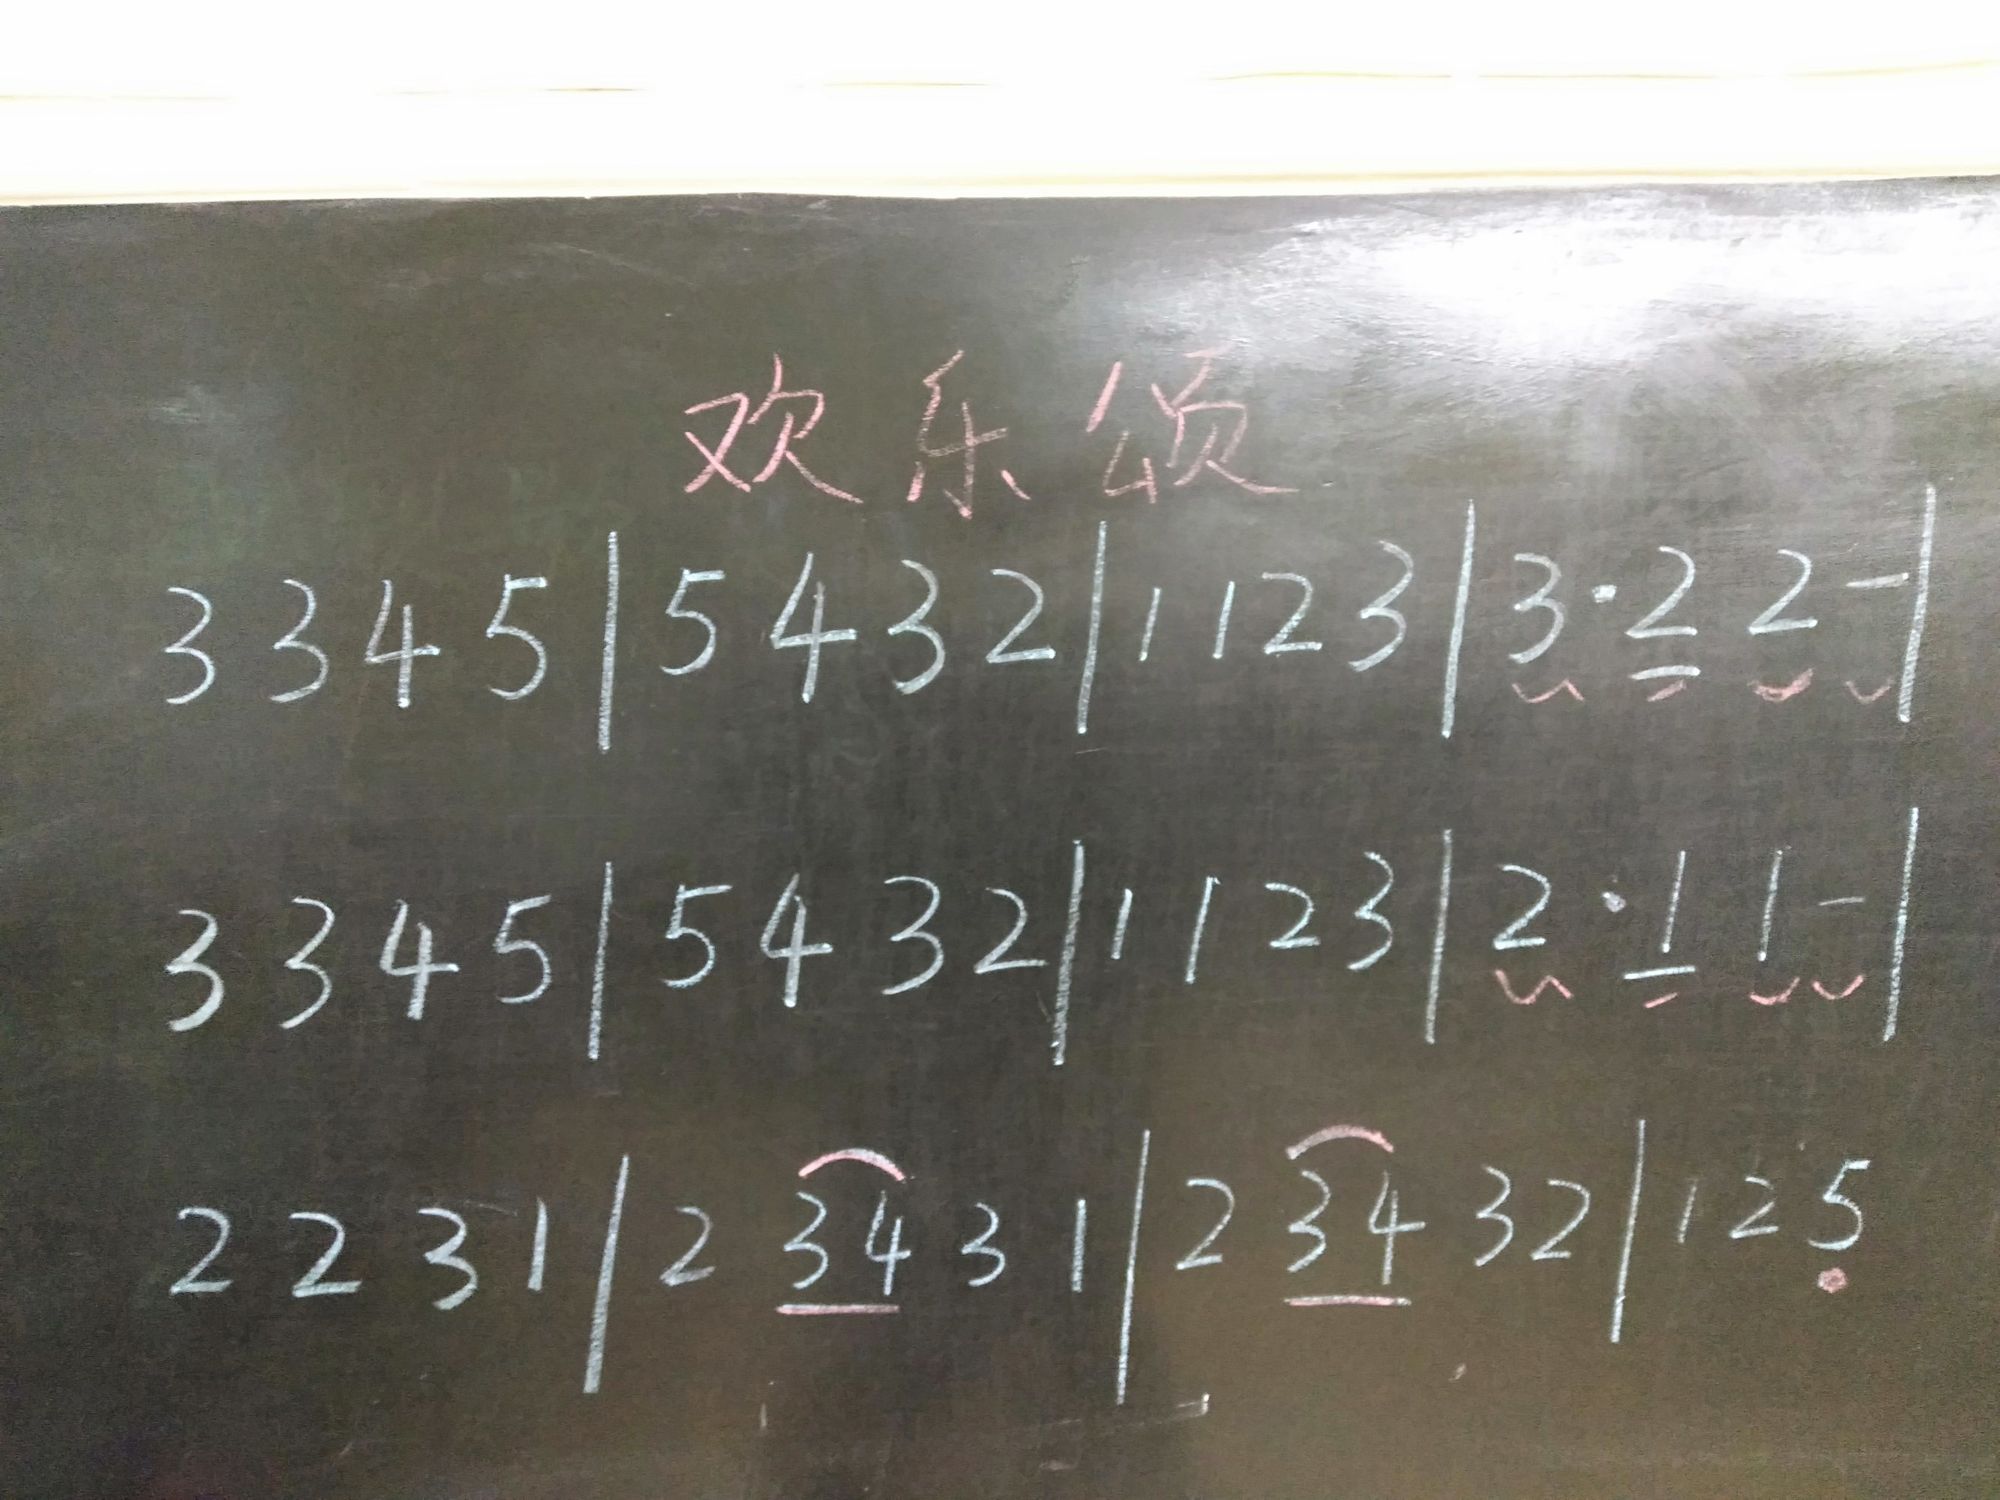 欢乐颂
3 3 4 5 | 5 4 3 2 | 1 1 2 3 | 3 · 2 2 - |
3 3 4 5 | 5 4 3 2 | 1 1 2 3 | 2 · 1 1 - |
2 2 3 1 | 2 34 3 1 | 2 34 3 2 | 1 2 5